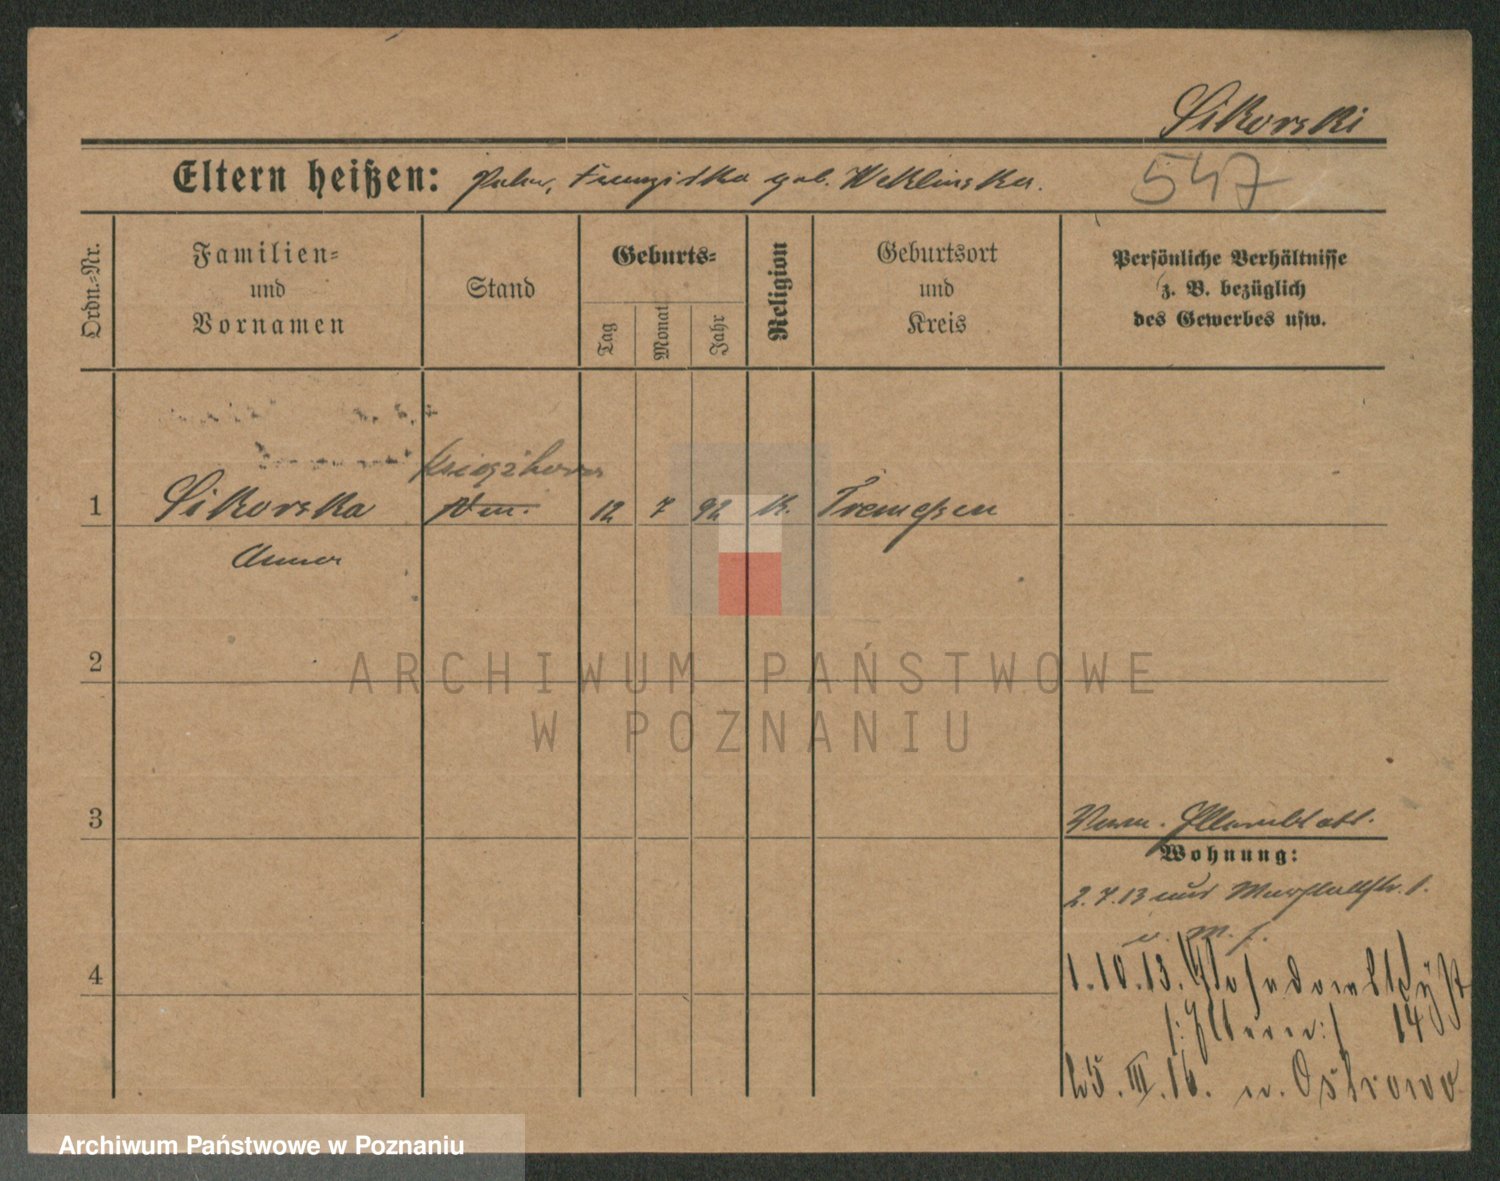 Sikorski
Eltern heißen: Peter, Franziska geb. Weklinska.
547
Ordn.-Nr.
Familien-
und
Vornamen
Stand
Geburts-
Tag
Monat
Jahr
Religion
Geburtsort
und
Kreis
Persönliche Verhältnisse
z. B. bezüglich
des Gewerbes usw.
1 Sikorska 12 7 92 k. Tremessen
Anna
2
3
4
Wohnung:
2.7.13
1.10.13.
/:Eltern:/ 14
25.III.16. n. Ostrowo
ARCHIWUM PAŃSTWOWE
W POZNANIU
Archiwum Państwowe w Poznaniu